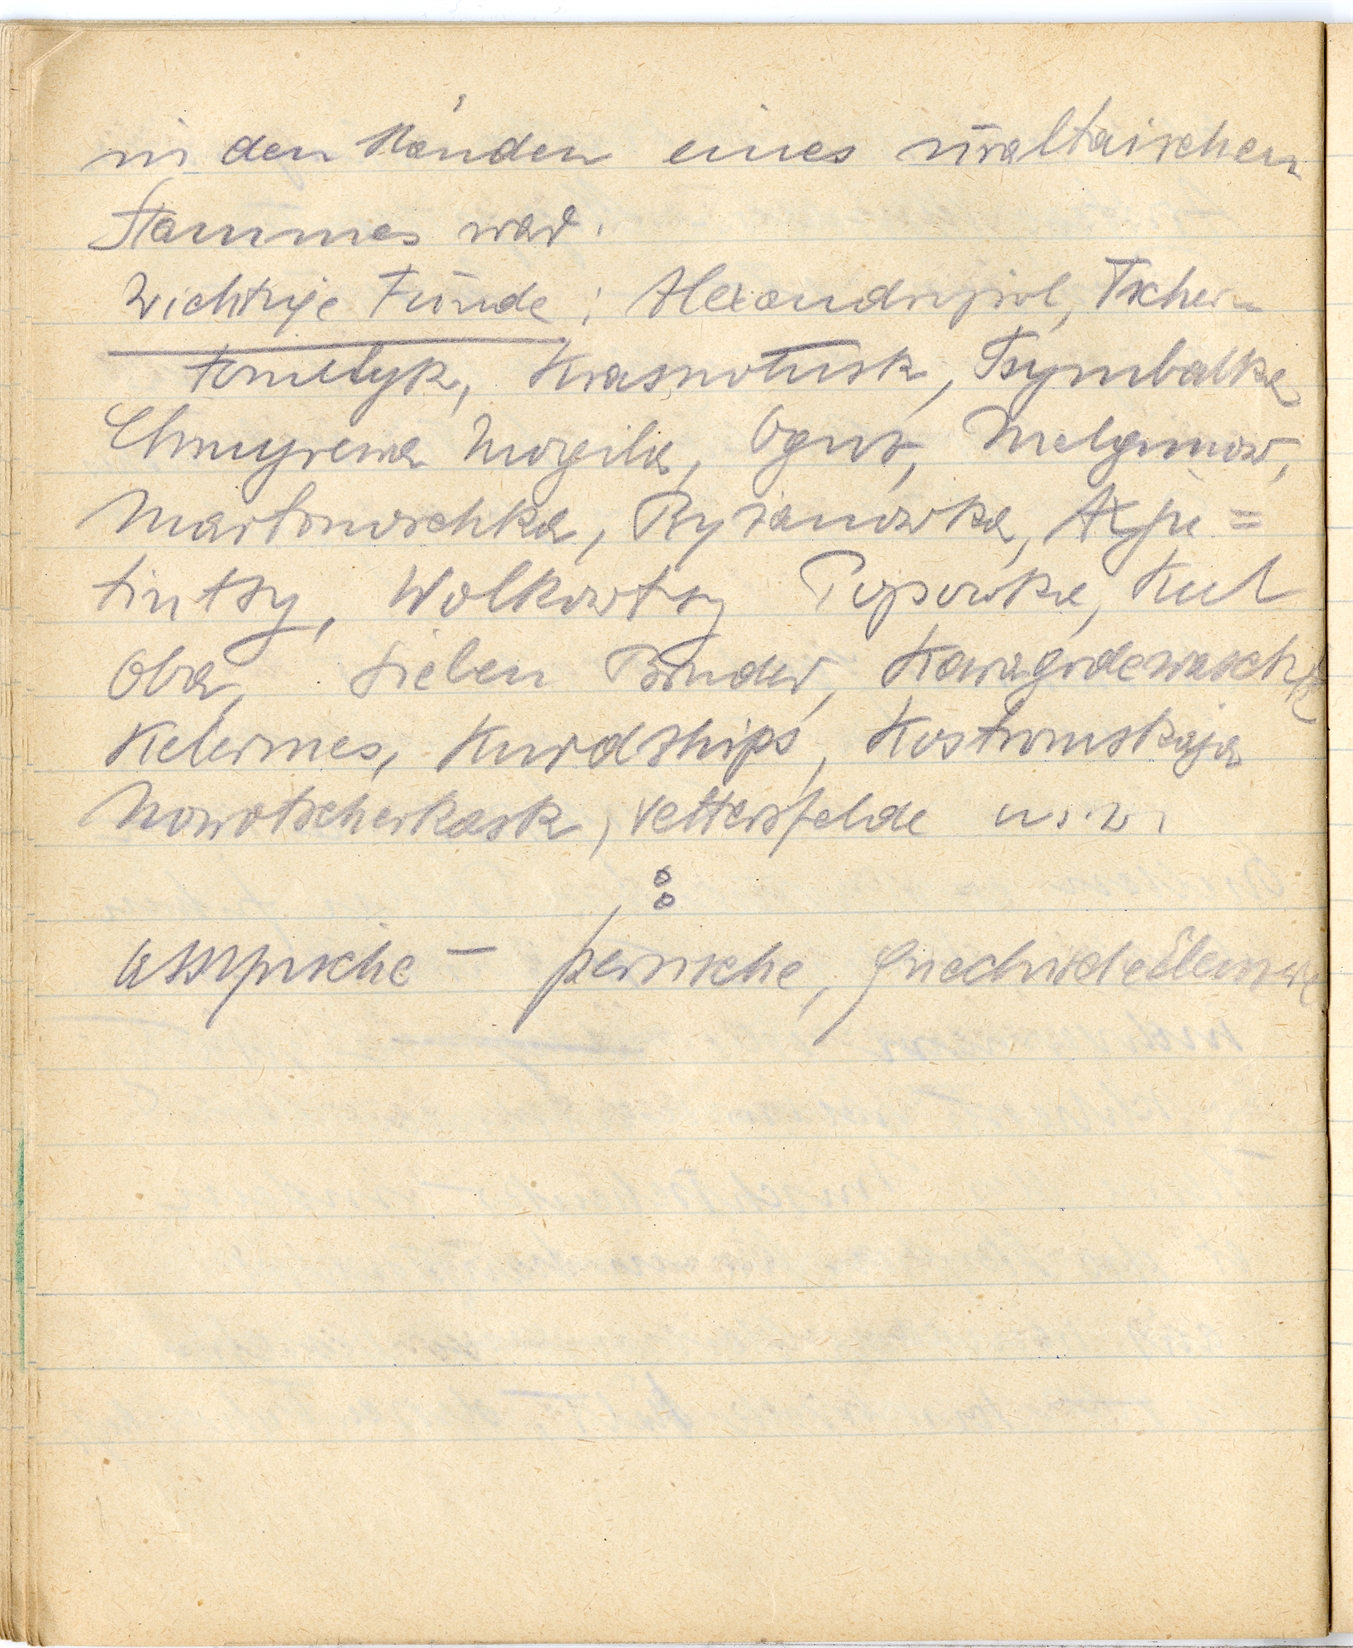 in den Händen eines uraltaischen
Stammes war.
Wichtige Funde: Alexandropol, Tscher-
tomlyk, Krasnokutsk, Tsymbalka
Chmyrewa Mogila, Oguz, Melgunow,
Martonoschka, Ryzanowka, Axju=
tintsy, Wolkowtsy Popowka, Kul
Oba, Sieben Brüder, Karagodewaschk
Kelermes, Kurdships, Kostromskaja
Nowotscherkask, Vettersfelde u.s.w.
:
assyrische - persische, griechische Elemente